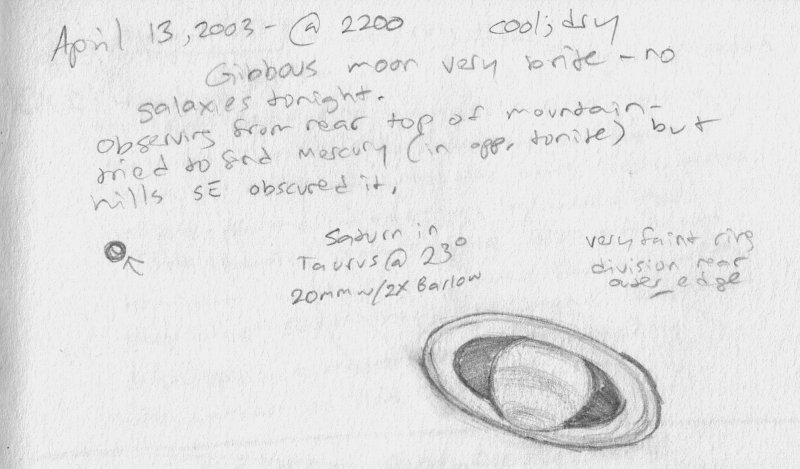 April 13, 2003 - @ 2200 cool; dry
Gibbous moon very brite - no
galaxies tonight.
Observing from near top of mountain -
tried to find Mercury (in opp. tonite) but
hills SE obscured it.
Saturn in
Taurus @ 23°
20mm w/2X Barlow
very faint ring
division near
outer edge